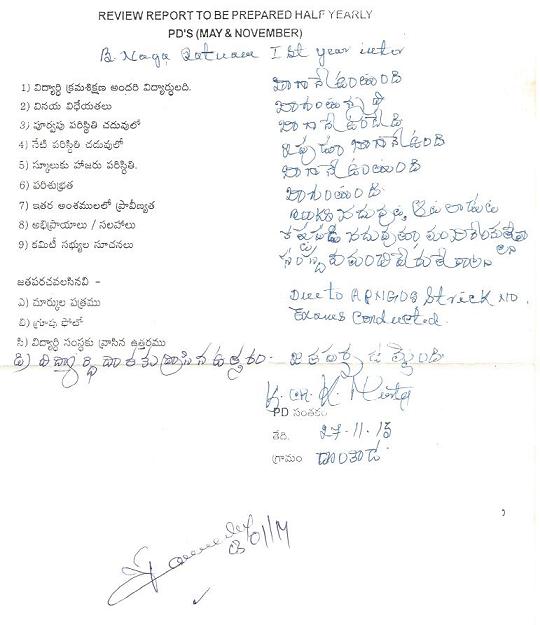 REVIEW REPORT TO BE PREPARED HALF YEARLY
PD'S (MAY & NOVEMBER)
B. Naga Ratnam I St year inter
1) విద్యార్థి క్రమశిక్షణ అందరి విద్యార్థులది. బాగానే ఉంటుంది
2) వినయ విధేయతలు బాగుంటున్నవి
3) పూర్వపు పరిస్థితి చదువులో బాగానే ఉండేది
4) నేటి పరిస్థితి చదువులో ఇప్పుడూ బాగానే ఉంది
5) స్కూలుకు హాజరు పరిస్థితి. బాగానే ఉంటుంది
6) పరిశుభ్రత బాగుంటుంది.
7) ఇతర అంశములలో ప్రావీణ్యత చదువు, ఆటలాడుట
8) అభిప్రాయాలు / సలహాలు
9) కమిటీ సభ్యుల సూచనలు
జతపరచవలసినవి -
ఎ) మార్కుల పత్రము Due to APNGOS Strick NO.
బి) గ్రూపు ఫోటో Exams Conducted.
సి) విద్యార్థి సంస్థకు వ్రాసిన ఉత్తరము
డి) విద్యార్థి దాతకు వ్రాసిన ఉత్తరం. జతపర్చడమైంది
PD సంతకం
తేది. 27.11.13
గ్రామం దాంతాడ